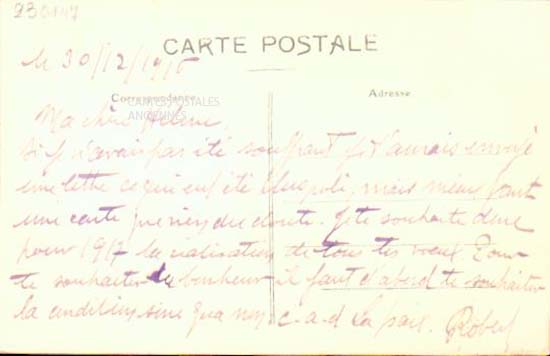 230147
CARTE POSTALE
le 30/12/1916
Correspondance
Adresse
CARTES POSTALES
ANCIENNES
Ma chère Hélène
Si je n'avais pas été souffrant je t'aurais envoyé
une lettre ce qui eut été plus poli, mais mieux vaut
une carte que rien du doute. Je te souhaite donc
pour 1917 la réalisation de tous tes voeux. Pour
te souhaiter du bonheur il faut d'abord te souhaiter
la condition sine qua non c-a-d la paix. Robert